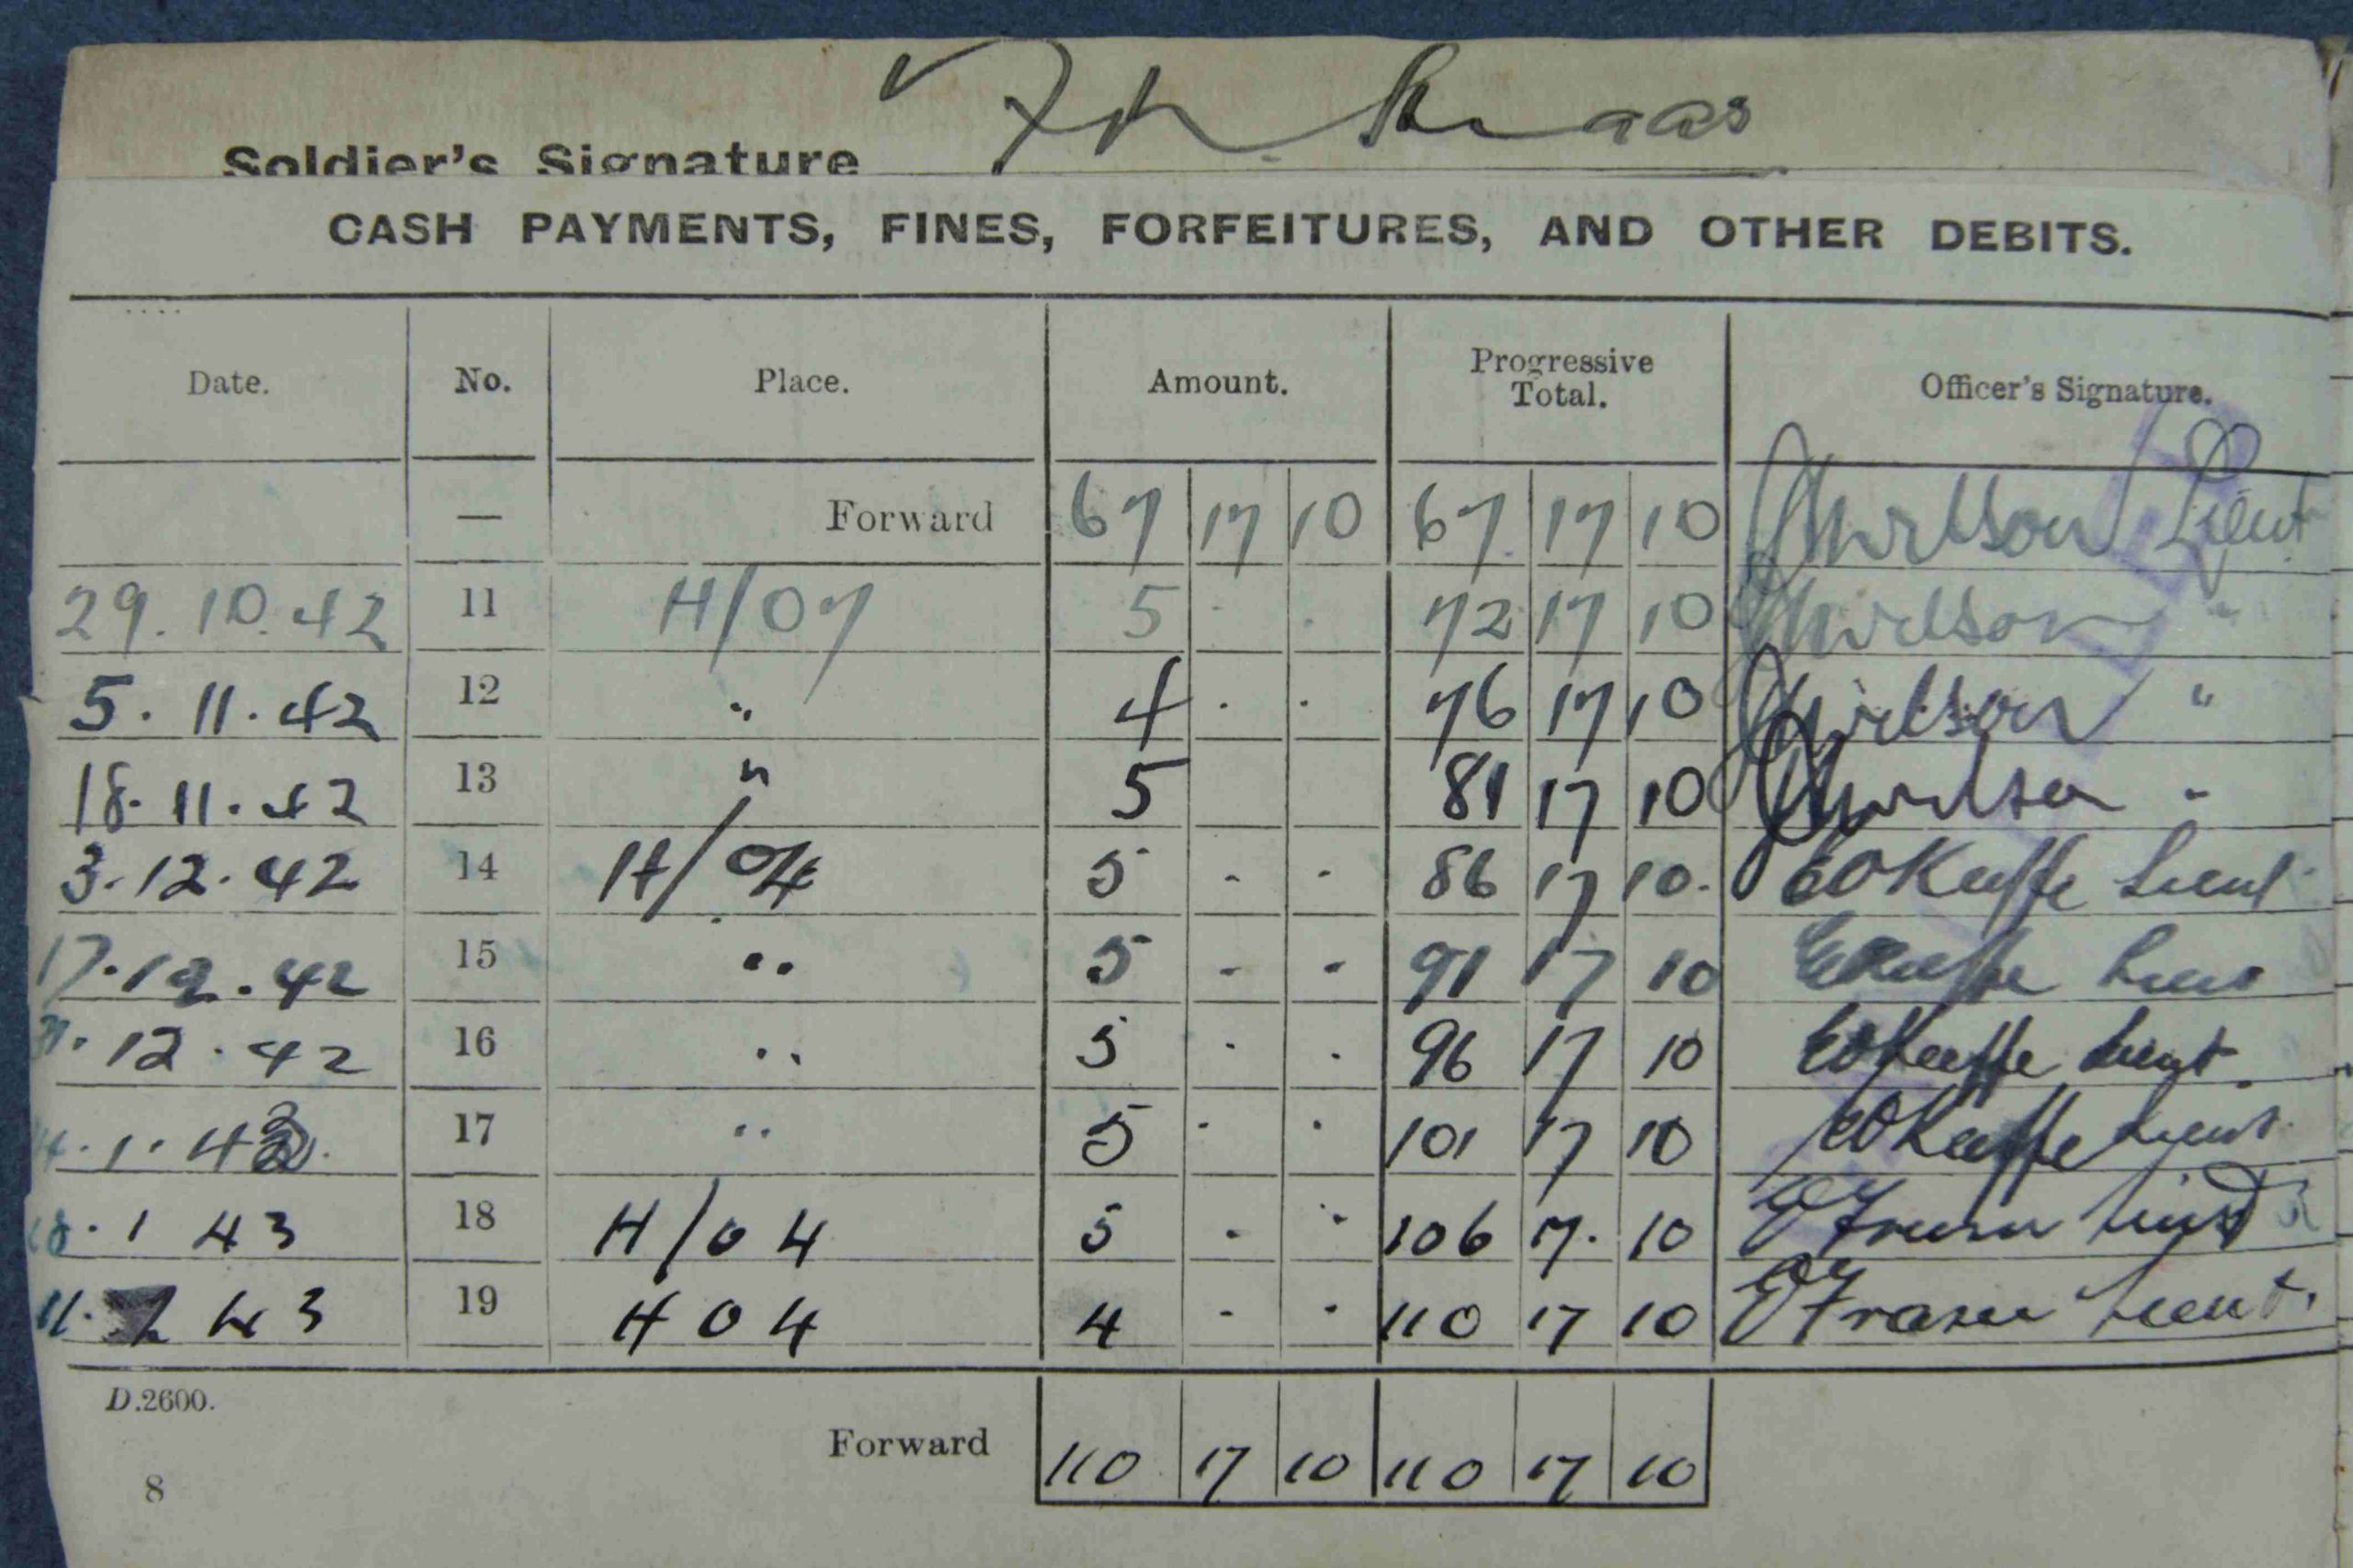 Soldier's Signature
CASH PAYMENTS, FINES, FORFEITURES, AND OTHER DEBITS.
Date. No. Place. Amount. Progressive Total. Officer's Signature.
— Forward 67 17 10 67 17 10 Lieut
29.10.42 11 H/07 5 - - 72 17 10 "
5.11.42 12 " 4 . . 76 17 10 "
18.11.42 13 " 5 81 17 10 "
3.12.42 14 H/04 5 - - 86 17 10. EOKeeffe Lieut
17.12.42 15 " 5 - - 91 17 10 EOKeeffe Lieut
12.42 16 " 5 . . 96 17 10 EOKeeffe Lieut.
.1.43 17 " 5 . . 101 17 10 EOKeeffe Lieut.
18.1 43 18 H/04 5 - - 106 17. 10 Fraser Lieut
11. 2 43 19 H04 4 - - 110 17 10 Fraser Lieut.
D.2600.
Forward 110 17 10 110 17 10
8